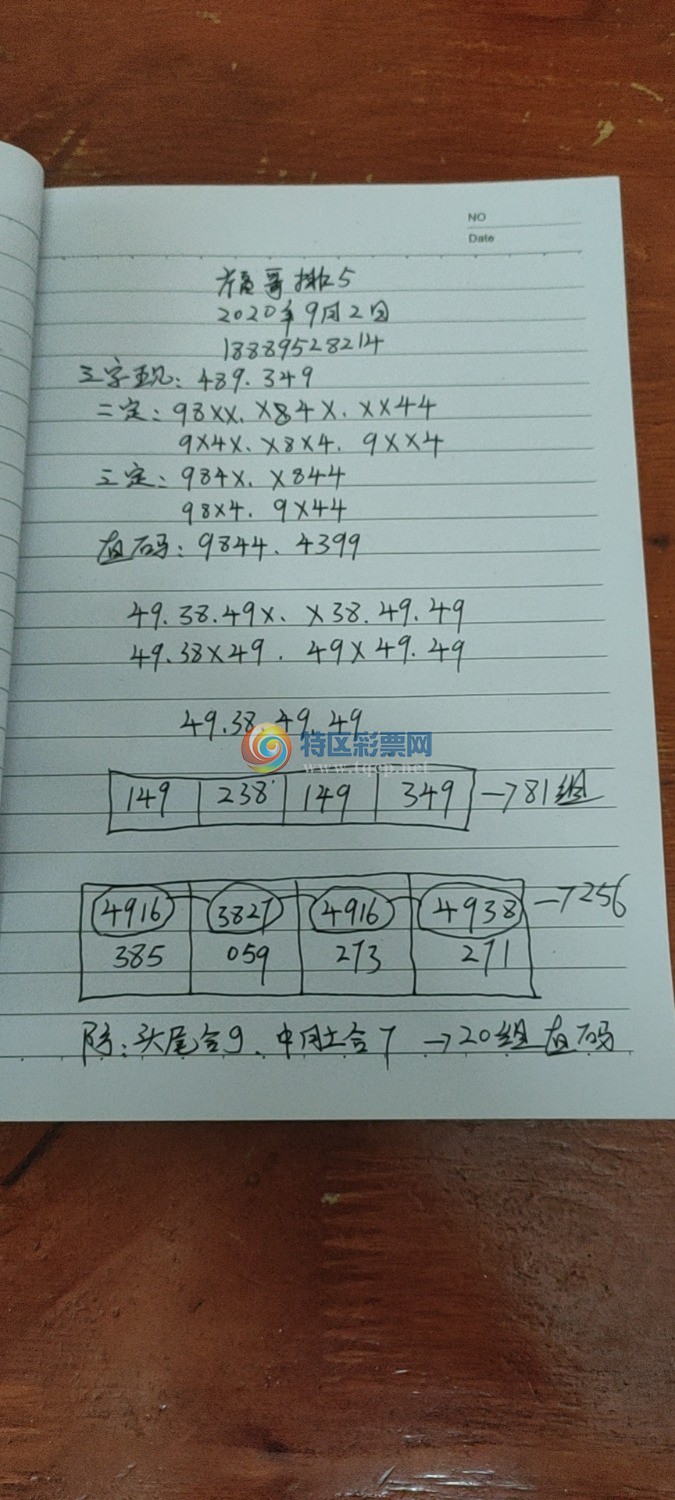 NO
Date
福哥排5
2020年9月2日
18889528214
三字现: 489. 349
二定: 98XX. X84X. XX44
9X4X. X8X4. 9XX4
三定: 984X. X844
98X4. 9X44
直码: 9844. 4399
49.38.49X. X38.49.49
49.38X49. 49X49.49
49.38.49.49
特区彩票网
www.tqcp.net
149 238 149 349 →81组
4916 3827 4916 4938 →256
385 059 273 271
防: 头尾合9、中肚合7 →20组直码